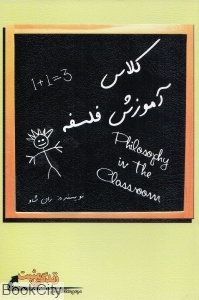 کلاس
1+1=3
آموزش فلسفه
Philosophy
in the
Classroom
نویسنده: ران شاو
BookCity.ir